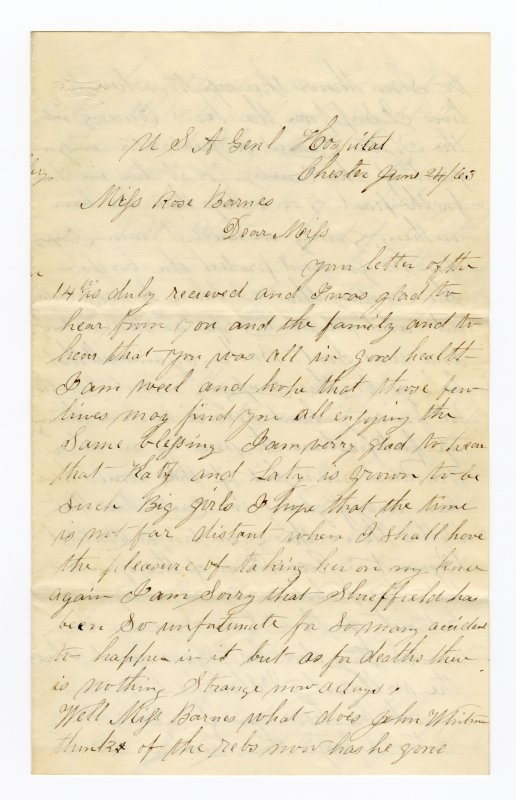 U S A Genl Hospital
Chester June 24/63
Miss Rose Barnes
Dear Miss
your letter of the
14th is duly recieved and I was glad to
hear from you and the family and to
hear that you was all in good health
I am well and hope that those few
lines may find you all enjoying the
same blessing I am verry glad to hear
that Katy and Laty is grown to be
such Big girls I hope that the time
is not far distant when I shall have
the pleasure of taking her on my knee
again I am Sorry that Sheffield has
been so unfortunate for so many accident
to happen in it but as for deaths there
is nothing Strange now adays.
Well Miss Barnes what does John Whitmu
thinks of the rebs now has he gone